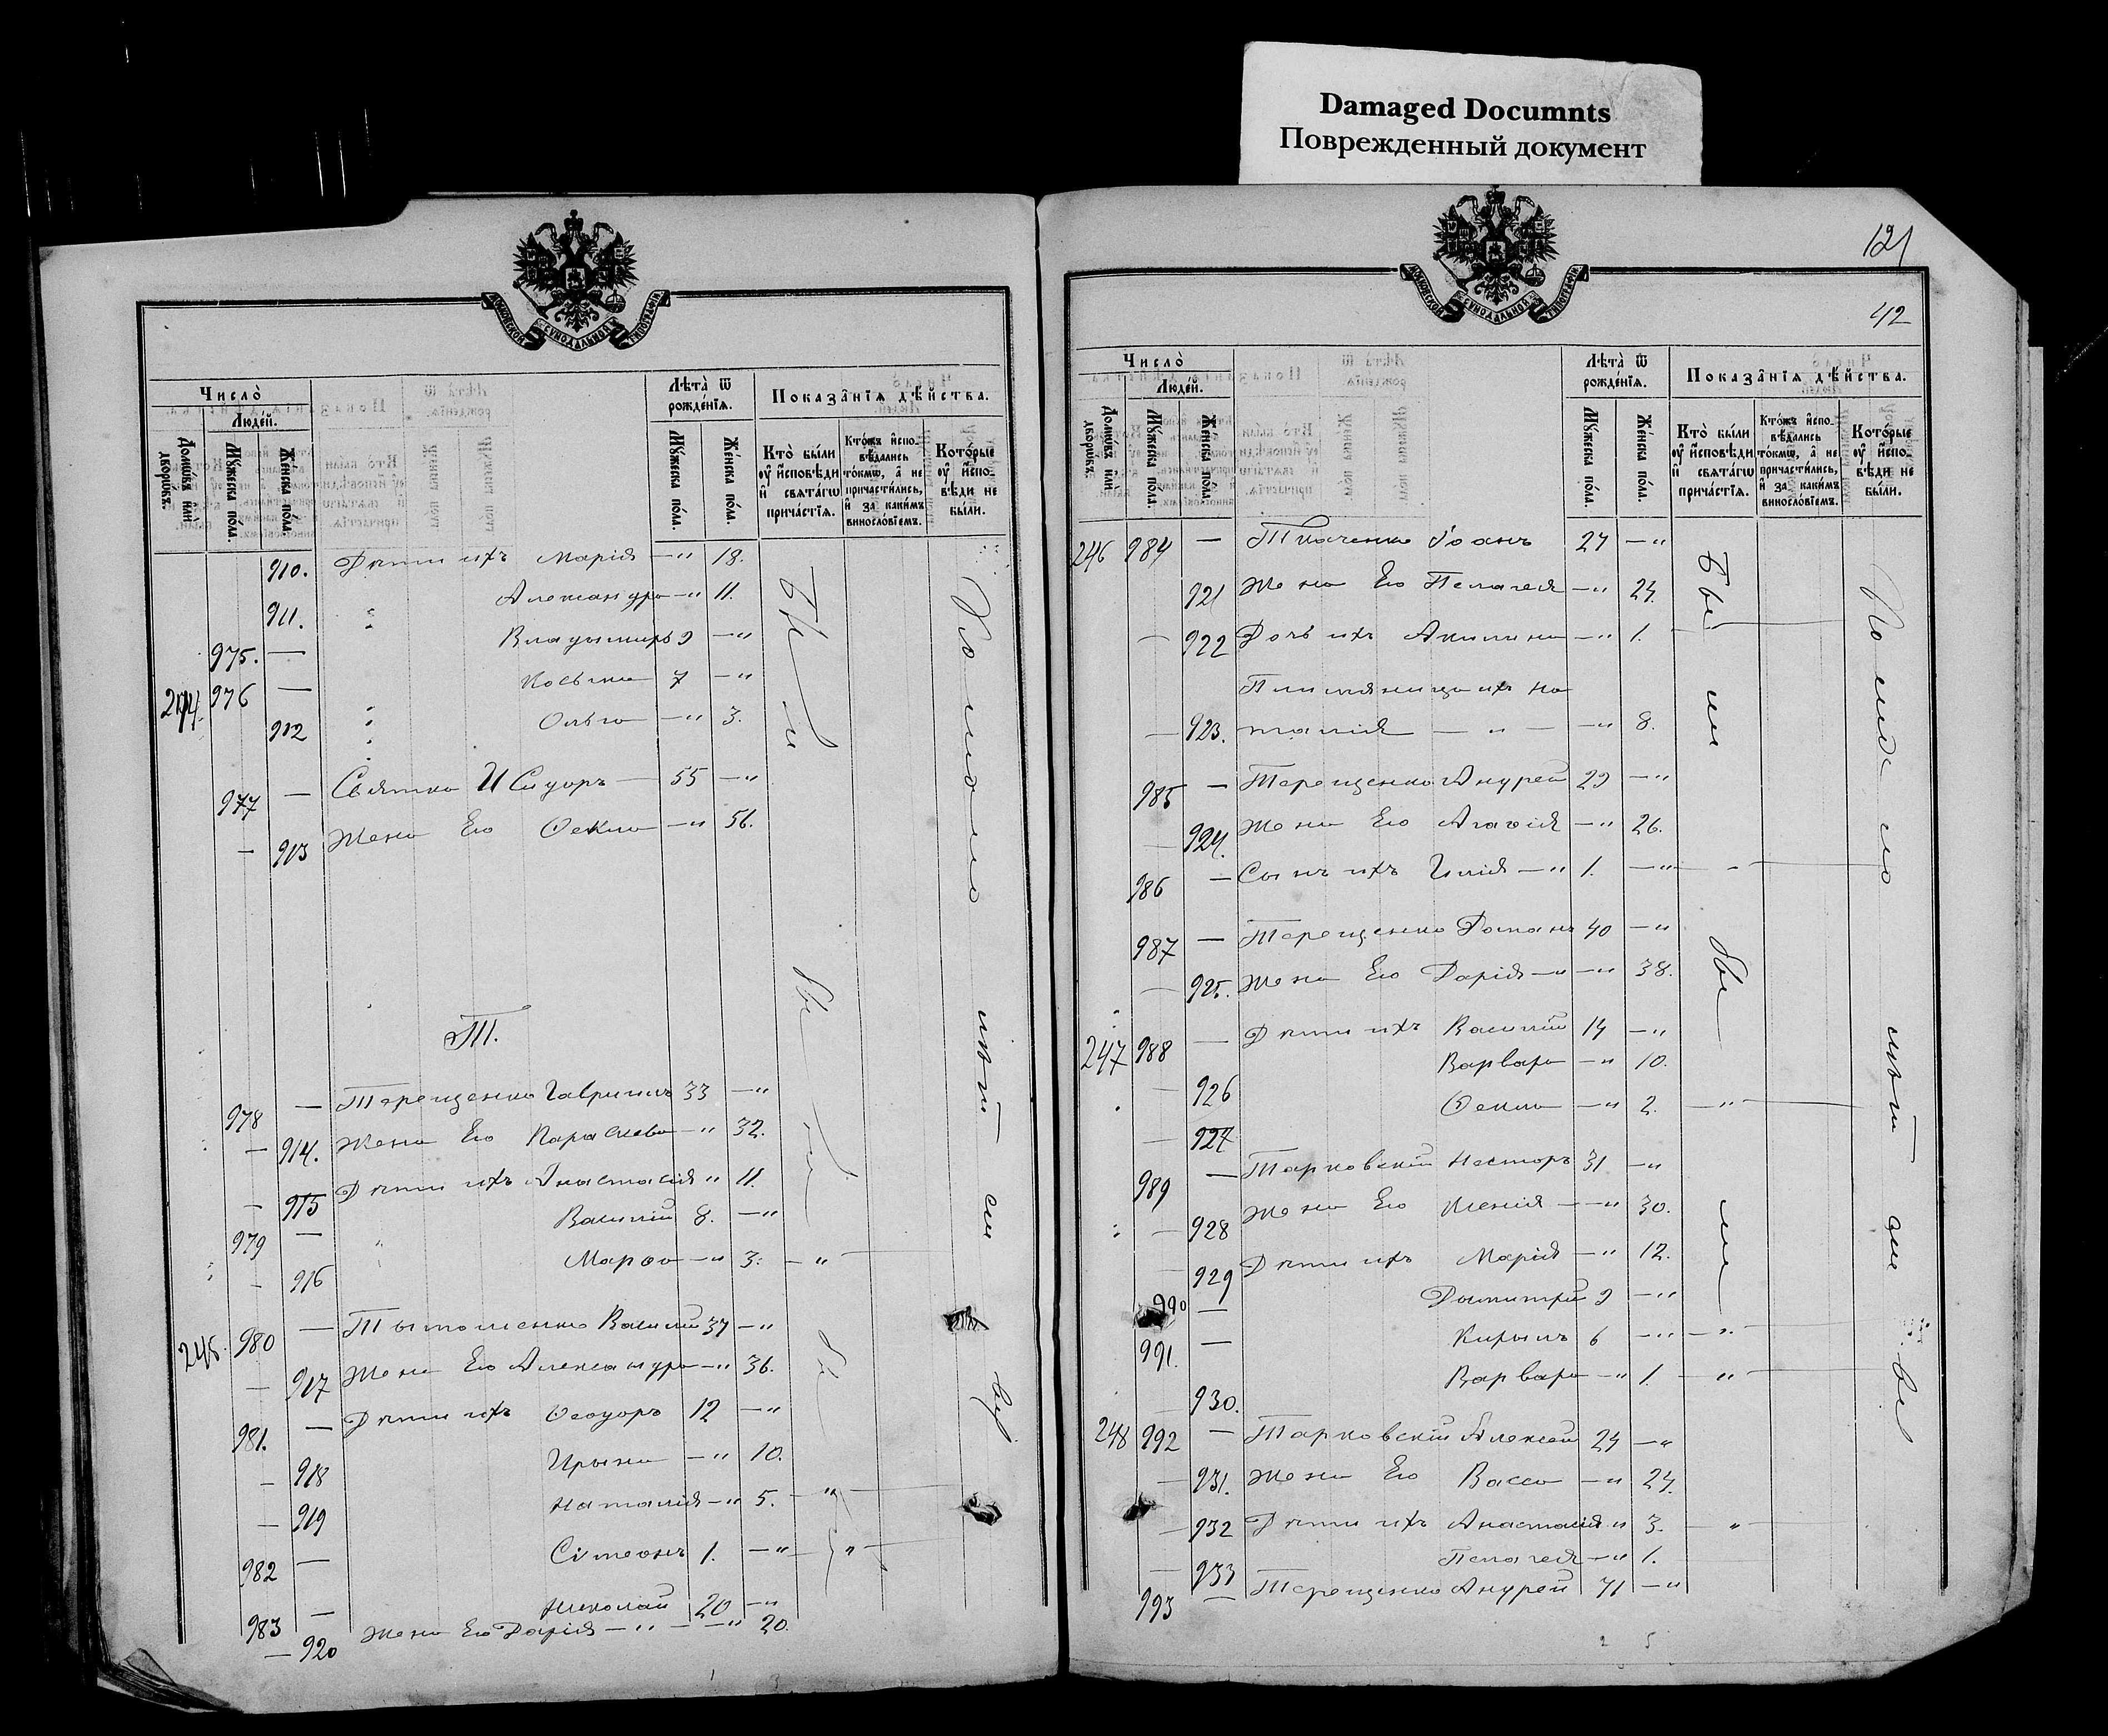 Damaged Documnts
Поврежденный документ
МОСКОВСКОЙ СѴНОДАЛЬНОЙ ТИПОГРАФІИ
Число̀
Люде́й.
Домѡ́въ и҆лѝ дворѡ́въ.
Мꙋ́жеска по́ла.
Же́нска по́ла.
Лѣ́та ѿ рожде́нїѧ.
Мꙋ́жеска по́ла.
Же́нска по́ла.
Показа̑нїѧ дѣ́йства.
Кто̀ бы́ли ᲂу҆ и҆сповѣ́ди и҆ свѧта́гѡ прича́стїѧ.
Кто́жъ и҆спо-вѣ́дались то́кмѡ, а҆ не причасти́лись, и҆ за каки́мъ винослові́емъ.
Кото́рые ᲂу҆ и҆спо-вѣ́ди не бы́ли.
910. Дѣти ихъ Марія —„ 18.
911. „ Александра —„ 11.
975. — Владымиръ 9 —„
244. 976 — Косьма 7 —„
912 „ Ольга —„ 3.
977 — Святко Исидоръ — 55 —„
— 913 Жена Его Ѳекла —„ 56.
Т.
978 — Терещенко Гавриилъ 33 —„
— 914. Жена Его Параскева —„ 32.
— 915 Дѣти ихъ Анастасія „ 11.
979 — „ Василій 8. —„
— 916 „ Марѳа —„ 3. —„
245. 980 — Тымошенко Василій 37 —„
— 917 Жена Его Александра —„ 36.
981. — Дѣти ихъ Ѳеодоръ 12 —„
— 918 Ирына —„ 10.
— 919 Наталія —„ 5. —„
982 — Сімеонъ 1. —„ „
983 — Николай 20 —„
— 920 Жена Его Дарія —„ — —„ 20.
Были
121
42
Число̀
Люде́й.
Домѡ́въ и҆лѝ дворѡ́въ.
Мꙋ́жеска по́ла.
Же́нска по́ла.
Лѣ́та ѿ рожде́нїѧ.
Мꙋ́жеска по́ла.
Же́нска по́ла.
Показа̑нїѧ дѣ́йства.
Кто̀ бы́ли ᲂу҆ и҆сповѣ́ди и҆ свѧта́гѡ прича́стїѧ.
Кто́жъ и҆спо-вѣ́дались то́кмѡ, а҆ не причасти́лись, и҆ за каки́мъ винослові́емъ.
Кото́рые ᲂу҆ и҆спо-вѣ́ди не бы́ли.
246 984 — Ткаченко Іоанъ 27 —„
921 Жена Его Пелагея —„ 24.
— 922 Дочь ихъ Акилина —„ 1.
Племяница ихъ На
— 923. талія — „ — —„ 8.
985 — Терещенко Андрей 29 —„
— 924. Жена Его Агаѳія —„ 26.
986 — Сынъ ихъ Илія —„ 1. —„ „
987 — Терещенко Романъ 40 —„
— 925. Жена Его Дарія —„ —„ 38.
247 988 — Дѣти ихъ Василій 14 —„
— 926 Варвара —„ 10.
— 927 Ѳекла —„ 2. —„
989 — Тарковскій Несторъ 31 —„
— 928 Жена Его Ксенія —„ 30.
— 929 Дѣти ихъ Марія —„ 12.
990 — Дымитрій 9 —„
991. — Кирылъ 6 —„ —„
— 930. Варвара —„ 1. —„
248 992 — Тарковскій Алексѣй 24 —„
— 931. Жена Его Васса —„ 24.
— 932 Дѣти ихъ Анастасія „ 3. — „
— 933 Пелагея —„ 1.
993 — Терещенко Андрей 71 —„
Были